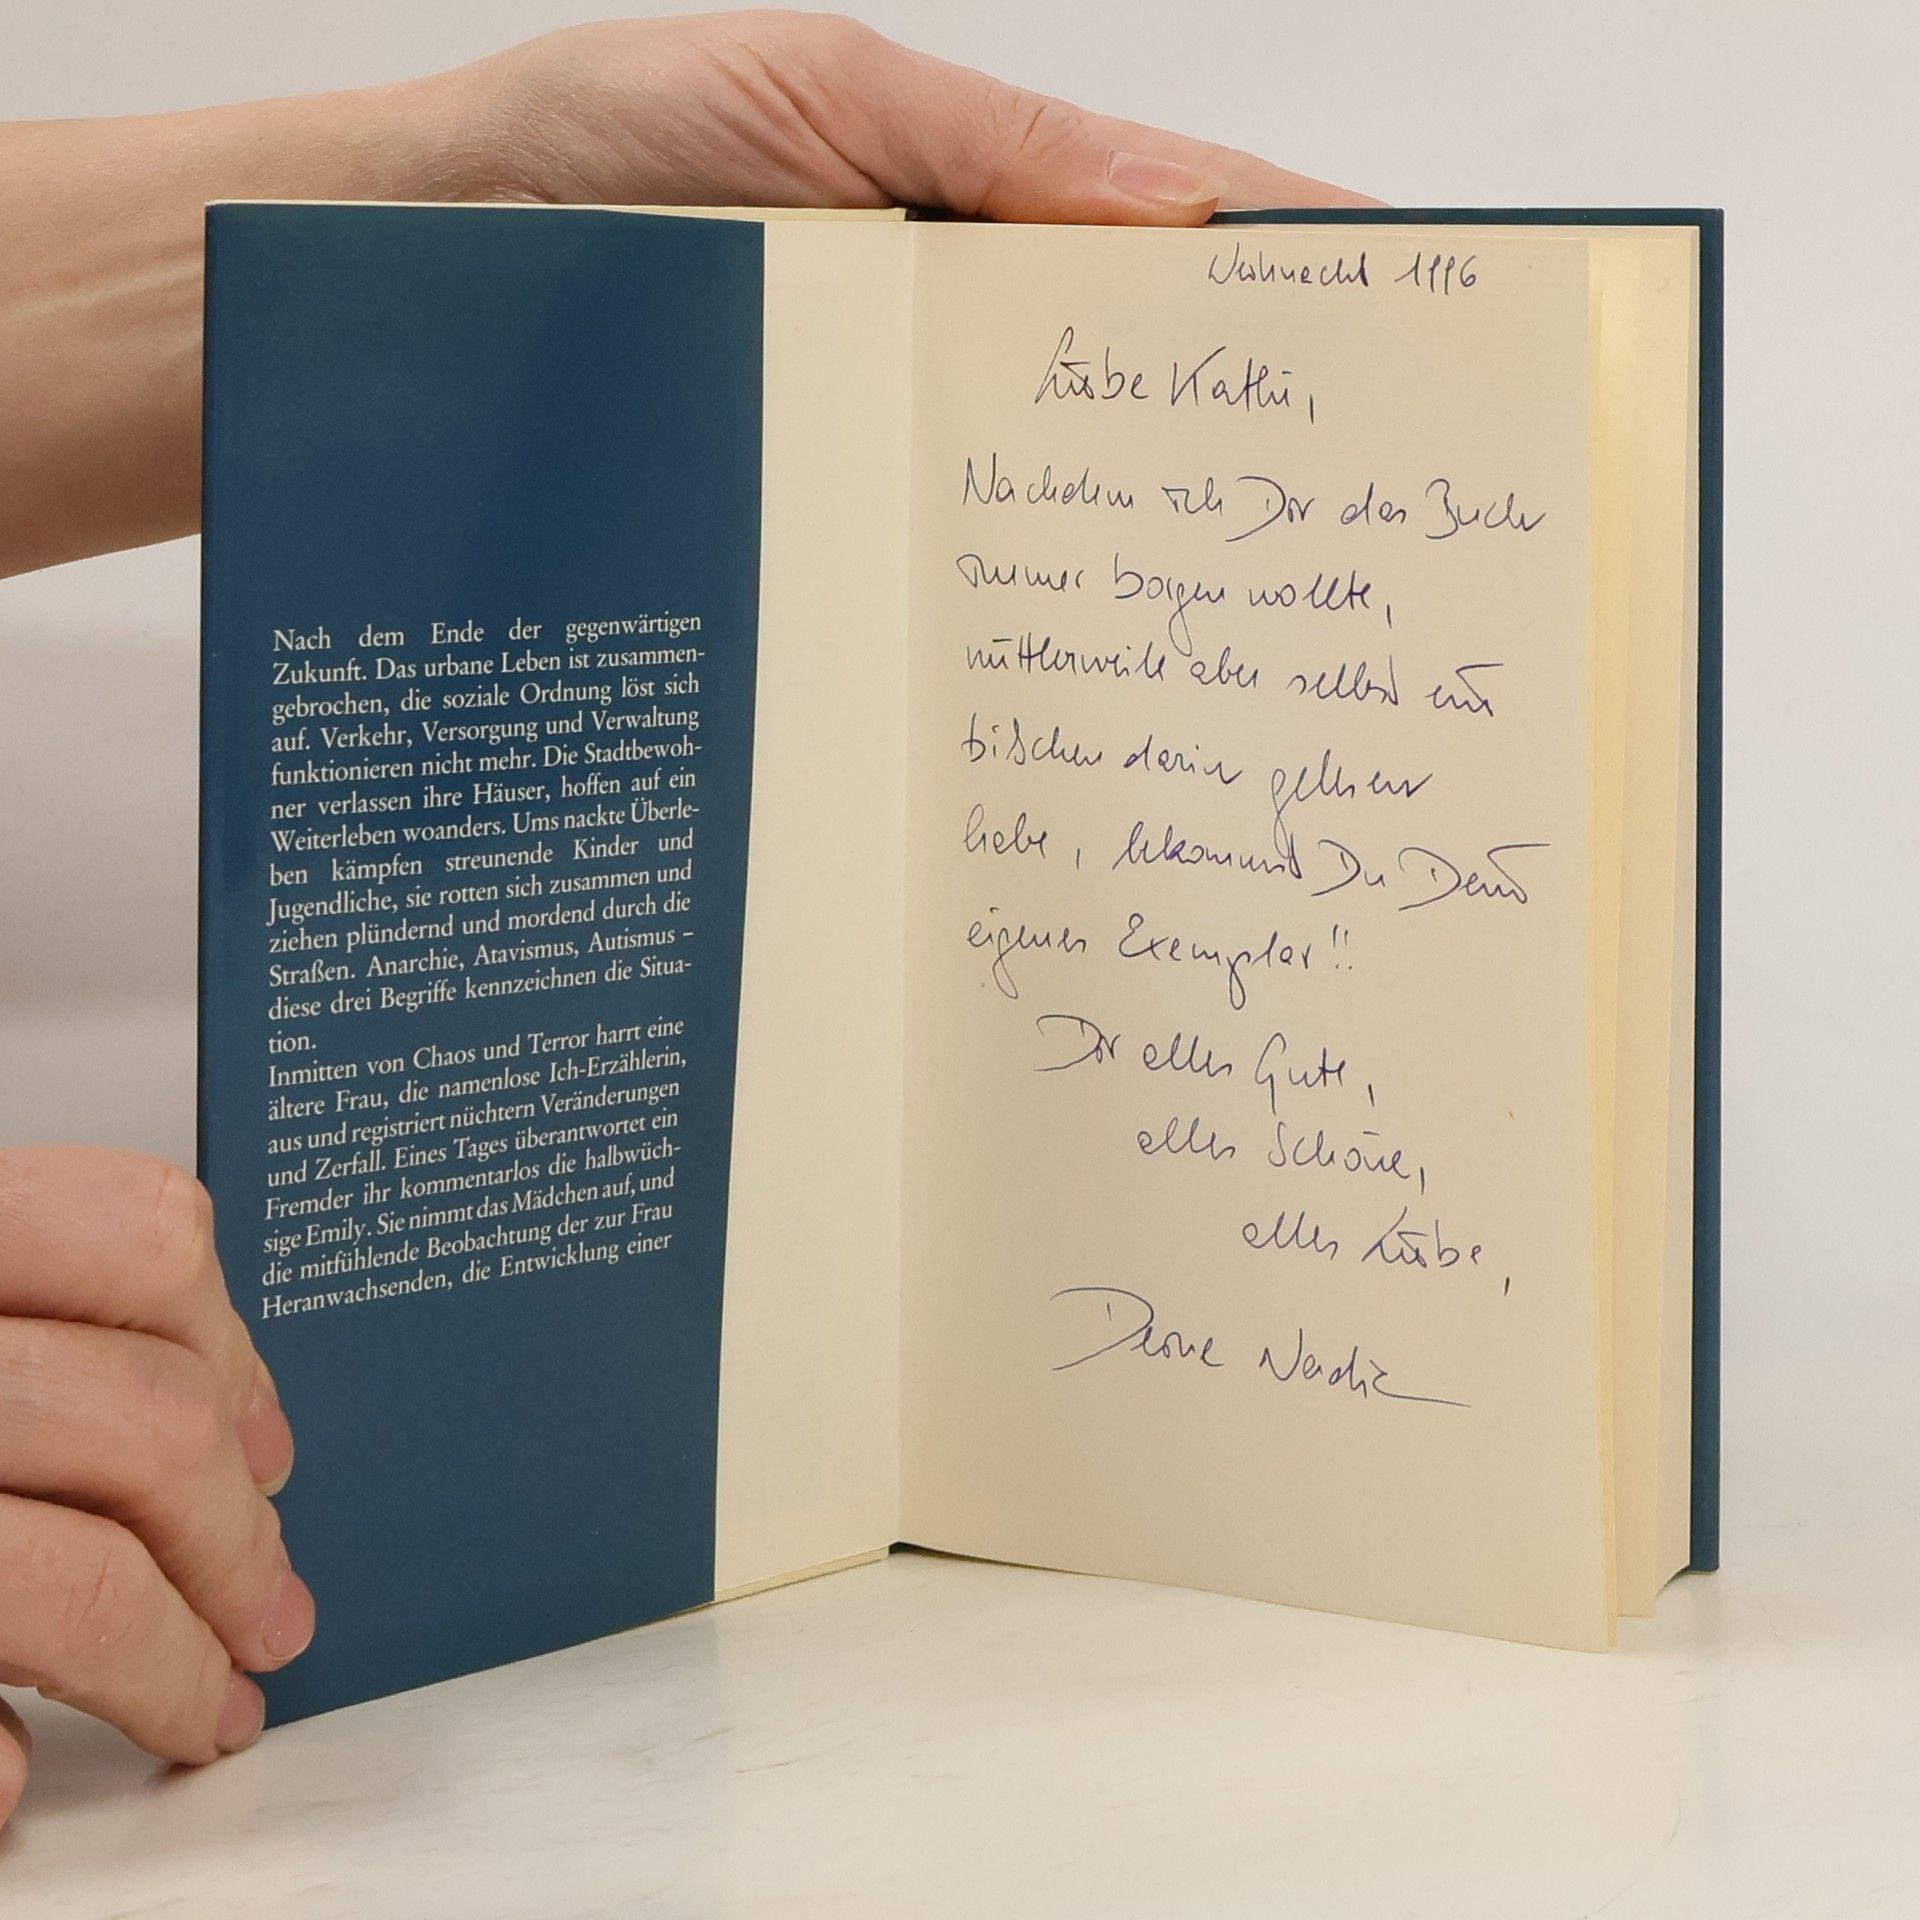 Nach dem Ende der gegenwärtigen
Zukunft. Das urbane Leben ist zusammen-
gebrochen, die soziale Ordnung löst sich
auf. Verkehr, Versorgung und Verwaltung
funktionieren nicht mehr. Die Stadtbewoh-
ner verlassen ihre Häuser, hoffen auf ein
Weiterleben woanders. Ums nackte Überle-
ben kämpfen streunende Kinder und
Jugendliche, sie rotten sich zusammen und
ziehen plündernd und mordend durch die
Straßen. Anarchie, Atavismus, Autismus –
diese drei Begriffe kennzeichnen die Situa-
tion.
Inmitten von Chaos und Terror harrt eine
ältere Frau, die namenlose Ich-Erzählerin,
aus und registriert nüchtern Veränderungen
und Zerfall. Eines Tages überantwortet ein
Fremder ihr kommentarlos die halbwüch-
sige Emily. Sie nimmt das Mädchen auf, und
die mitfühlende Beobachtung der zur Frau
Heranwachsenden, die Entwicklung einer
Weihnacht 1996
Liebe Kathi,
Nachdem ich Dir das Buch
immer borgen wollte,
mittlerweile aber selbst ein
bißchen darin gelesen
habe, bekommst Du Dein
eigenes Exemplar!!
Dir alles Gute,
alles Schöne,
alles Liebe,
Deine Nadia